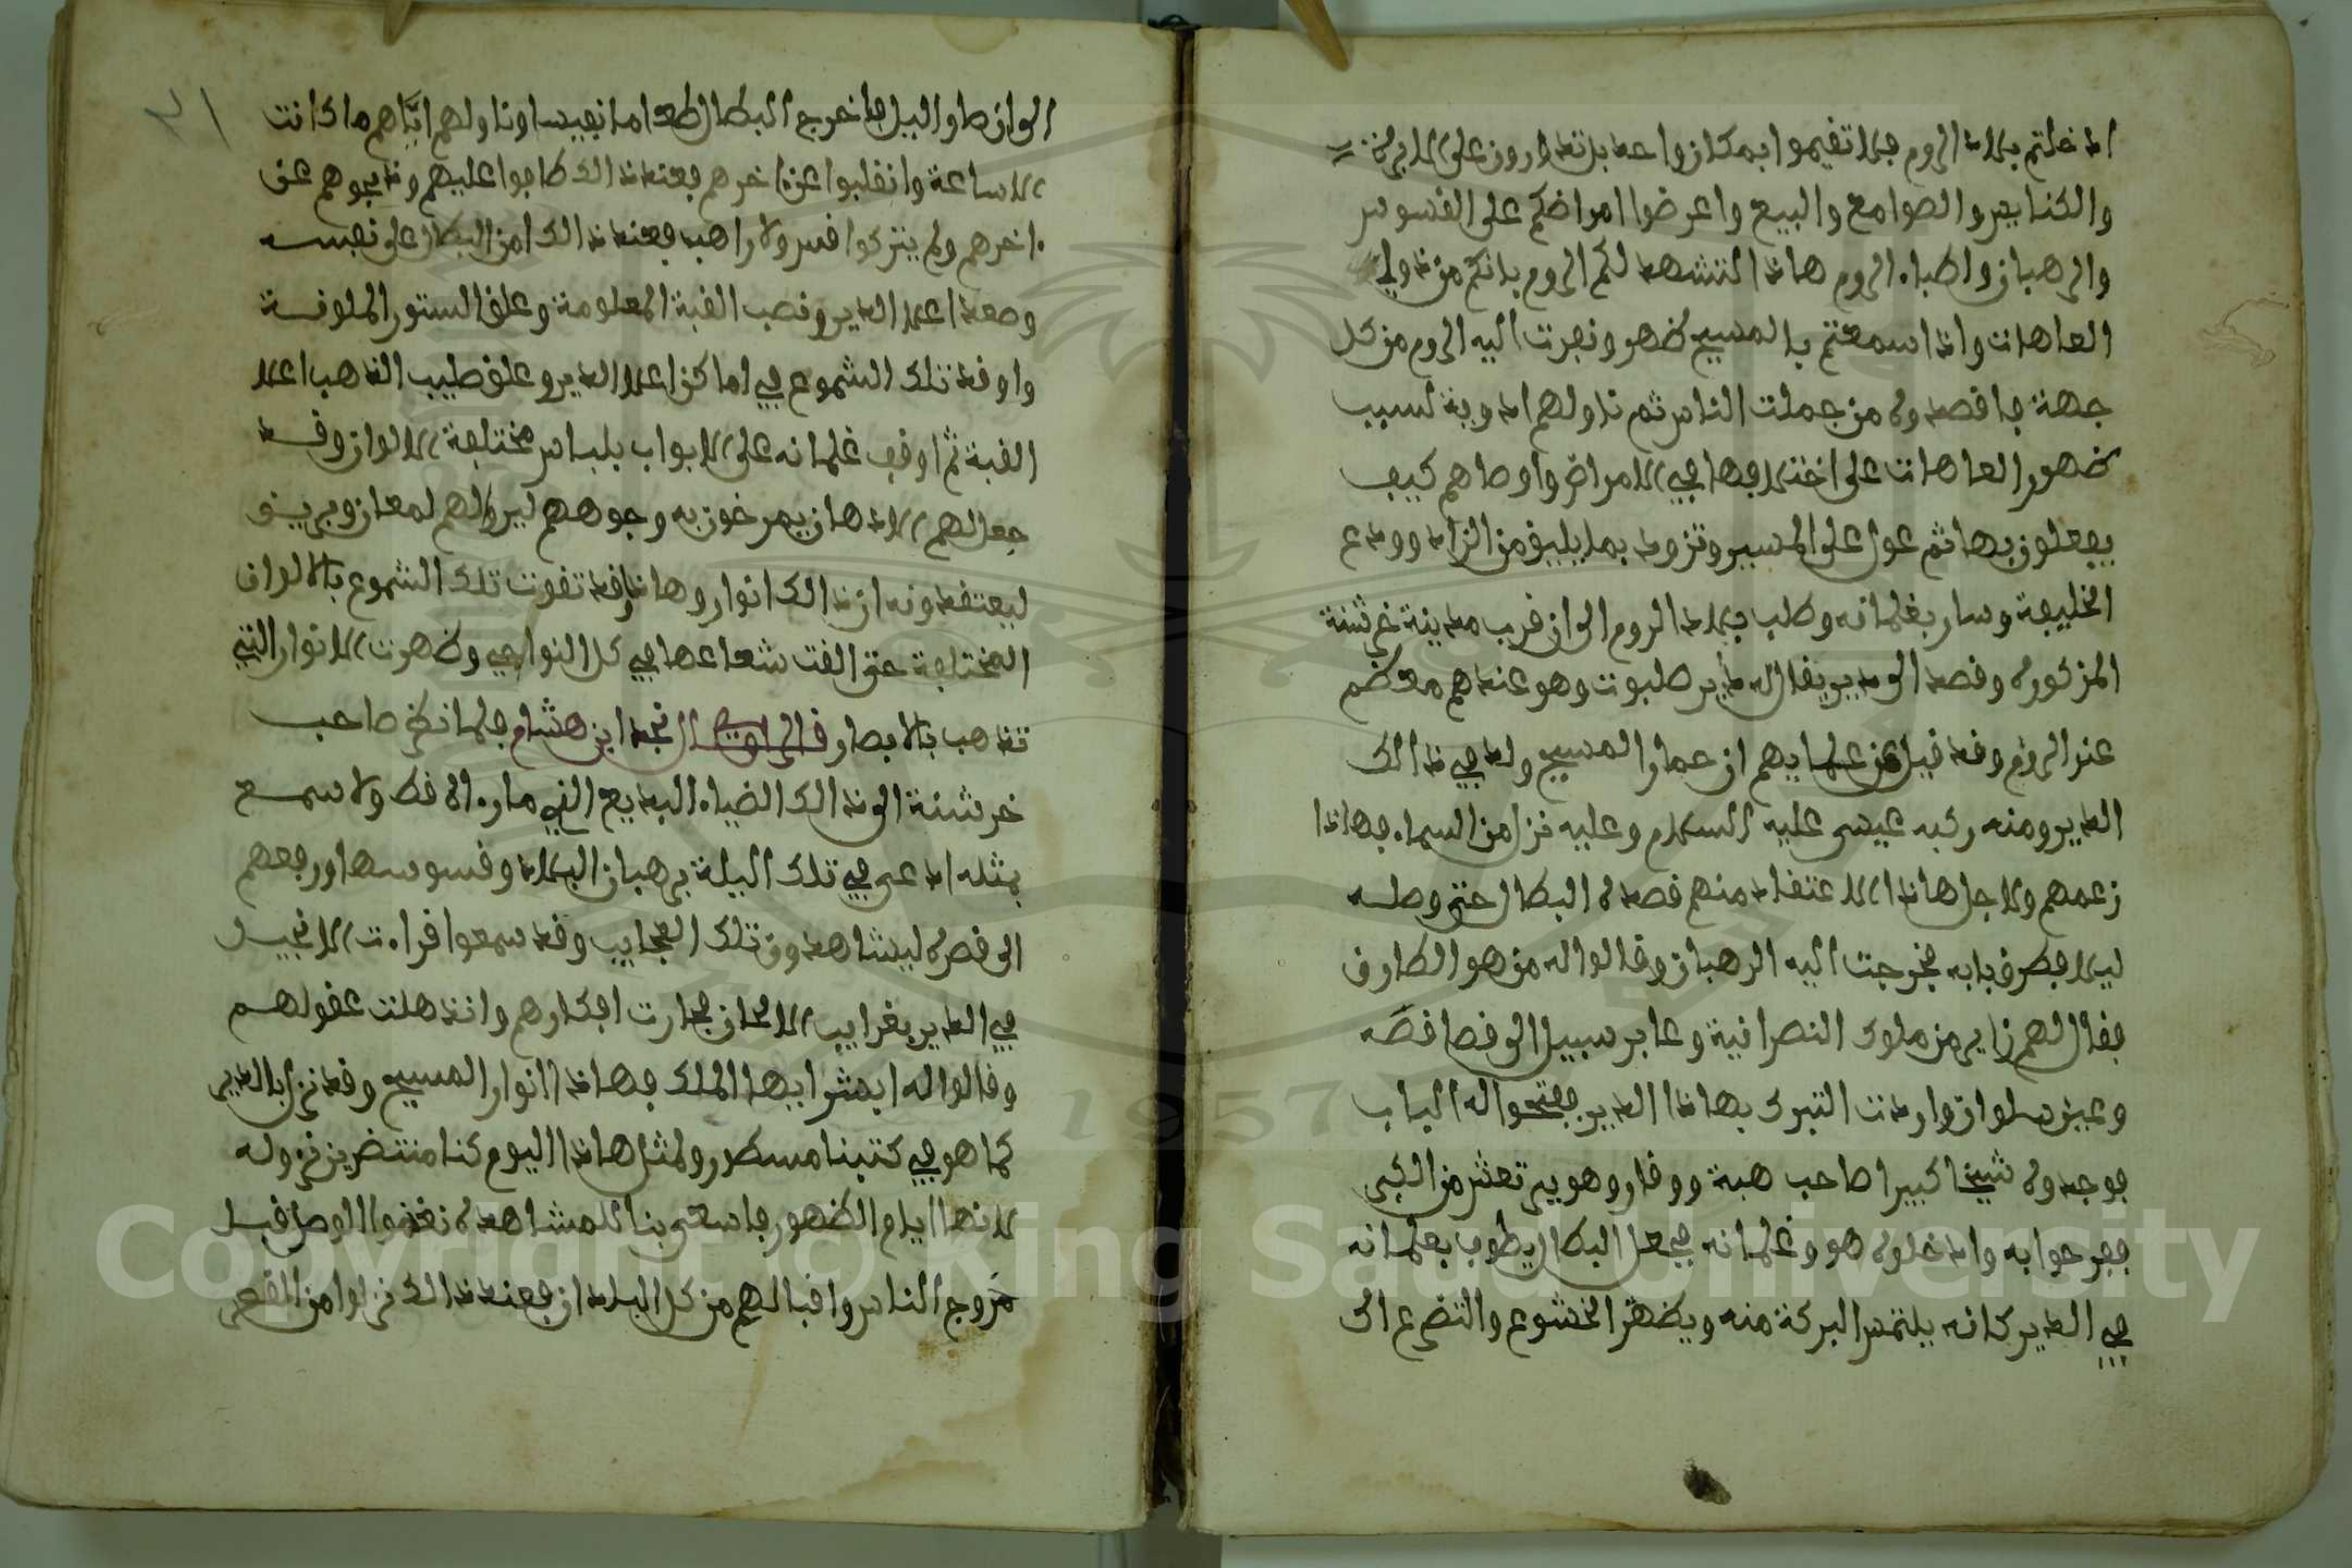 ادخلتم بلاد الروم فلا تقيموا بمكان واحد بل تدورون على الاديرة
والكنايس والصوامع والبيع واعرضوا امراضكم على القسوس
والرهبان واطباء الروم هاذا لتشهد لكم الروم بانكم من ذوي
العاهات واذا سمعتم بالمسيح ظهر ونفرت اليه الروم من كل
جهة فاقصدوه من جملت الناس ثم ناولهم ادوية لسبب
ظهور العاهات على اختلافها في الامراض واوصاهم كيف
يفعلون بها ثم عول على المسير وتزود بما يليق من الزاد وودع
الخليفة وسار بغلمانه وطلب بلاد الروم الى ان قرب مدينة خرشنة
المزكوره وقصد الى دير يقال له دير صلبوت وهو عندهم معظم
عنر الروم وقد قيل عن علمايهم ان عمار المسيح ولد في ذالك
الدير ومنه ركبه عيسى عليه السلام وعليه نزل من السماء فهاذا
زعمهم ولاجل هاذا الاعتقاد منهم قصده البطال حتى وصله
ليلا فطرق بابه فخرجت اليه الرهبان وقالوا له من هو الطارق
فقال لهم زاير من ملوك النصرانية وعابر سبيل الى قضا قصّه
وعيش سلوان واردت التبرك بهاذا الدير ففتحوا له الباب
فوجدوه شيخا كبيرا صاحب هبة ووقار وهو يرتعش من الكبر
ففرحوا به وادخلوه هو وغلمانه فجعل البطال يطوف بغلمانه
في الدير كانه يلتمس البركة منه ويظهر الخشوع والتضرع الى
٣١
الى ان صار اليل فاخرج البطال طعاما نفيسا وناولهم ايّاهم ما كانت
الا ساعة وانقلبوا عن اخرهم فعند ذالك طافوا عليهم وذبحوهم عن
اخرهم ولم يتركوا قس ولا راهب فعند ذالك امن البطال على نفسه
وصعد اعلا الدير ونصب القبة المعلومة وعلق الستور الملونة
واوقد تلك الشموع في اماكن اعلا الدير وعلق صليب الذهب اعلا
القبة ثم اوقف غلمانه على الابواب بلباس مختلفة الالوان وقد
جعل لهم الادهان يمرخون به وجوههم ليروا لهم لمعان وبريق
ليعتقدونه ان ذالك انوار وهاذا وقد تقوت تلك الشموع بالالوان
المختلفة حتى القت شعاعها في كل النواحي وظهرت الانوار التي
تذهب بالابصار قال الراوي نجد ابن هشام فلما نظر صاحب
خرشنة الى ذالك الضياء البديع الذي ماراه قط ولا سمع
بمثله ادعى في تلك اليلة برهبان البلاد وقسوسها ورفعهم
الى قصره ليشاهدون تلك العجايب وقد سمعوا قراءت الانجيل
في الدير بغرايب الالحان فحارت افكارهم وانذهلت عقولهم
وقالوا له ابشر ايها الملك فهاذا انوار المسيح وقد نزل بالدير
كما هو في كتبنا مسطر ولمثل هاذا اليوم كنا منتظرين نزوله
لانها ايام الظهور فاسعى بنا للمشاهده نغنموا الوصل قبل
مروج الناس واقبالهم من كل البلدان فعند ذالك نزلوا من القصر
Copyright © King Saud University
1957